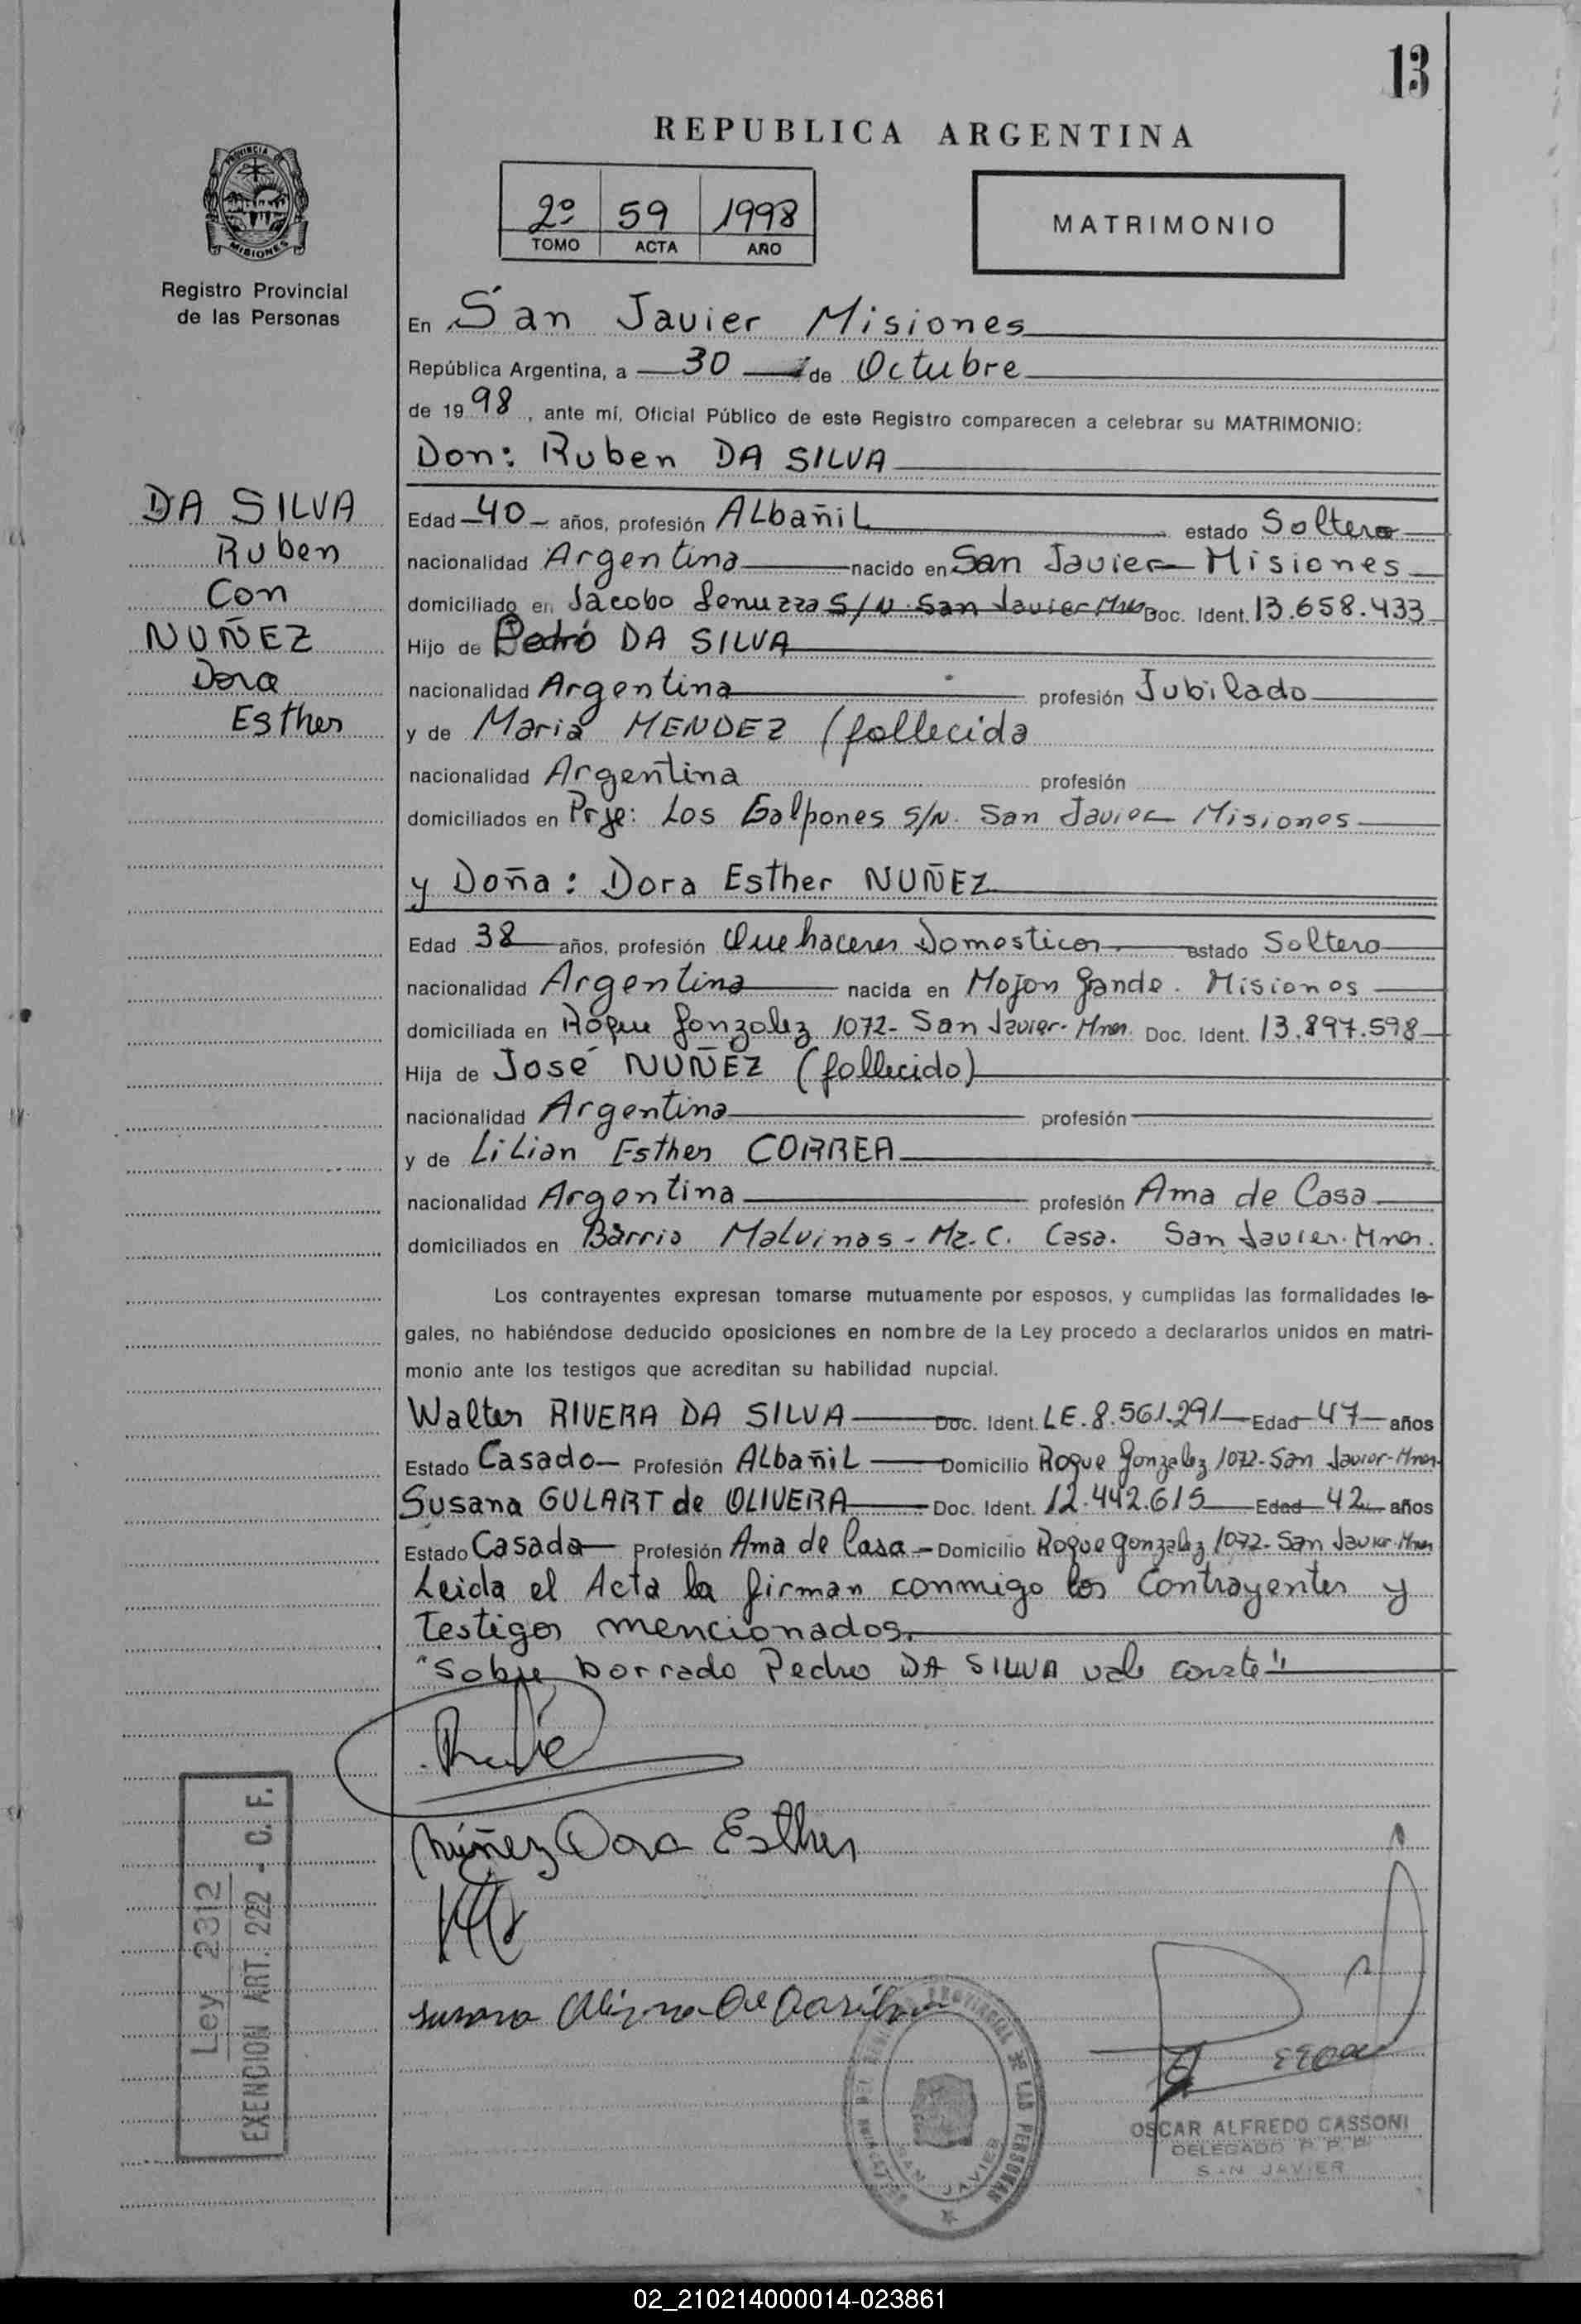 13
REPUBLICA ARGENTINA
PROVINCIA DE
MISIONES
Registro Provincial
de las Personas
2º 59 1998
TOMO ACTA AÑO
MATRIMONIO
En San Javier Misiones
República Argentina, a 30 de Octubre
de 1998, ante mí, Oficial Público de este Registro comparecen a celebrar su MATRIMONIO:
Don: Ruben DA SILVA
DA SILVA
Ruben
Con
NUÑEZ
Dora
Esther
Edad 40 años, profesión ALbañiL estado Soltero
nacionalidad Argentina nacido en San Javier Misiones
domiciliado en Jacobo S/N. San Javier Mnes Doc. Ident. 13.658.433
Hijo de Pedro DA SILVA
nacionalidad Argentina profesión Jubilado
y de Maria MENDEZ (fallecida
nacionalidad Argentina profesión
domiciliados en Prje: Los Galpones S/N. San Javier Misiones
y Doña: Dora Esther NUÑEZ
Edad 38 años, profesión Quehaceres Domesticos estado Soltera
nacionalidad Argentina nacida en Mojon Grande. Misiones
domiciliada en Roque Gonzalez 1072- San Javier- Mnes. Doc. Ident. 13.897.598
Hija de José NUÑEZ (fallecido)
nacionalidad Argentina profesión
y de LiLian Esther CORREA
nacionalidad Argentina profesión Ama de Casa
domiciliados en Barrio Malvinas - Mz. C. Casa. San Javier. Mnes.
Los contrayentes expresan tomarse mutuamente por esposos, y cumplidas las formalidades le-
gales, no habiéndose deducido oposiciones en nombre de la Ley procedo a declararlos unidos en matri-
monio ante los testigos que acreditan su habilidad nupcial.
Walter RIVERA DA SILVA Doc. Ident. LE. 8.561.291 Edad 47 años
Estado Casado Profesión ALbañiL Domicilio Roque Gonzalez 1072- San Javier-Mnes
Susana GULART de OLIVERA Doc. Ident. 12.442.615 Edad 42 años
Estado Casada Profesión Ama de Casa Domicilio Roque Gonzalez 1072- San Javier-Mnes
Leida el Acta la firman conmigo los Contrayentes y
Testigos mencionados.
"Sobre borrado Pedro DA SILVA vale conste"
Núñez Dora Esther
Susana
Ley 2312
EXENCION ART. 222 - C. F.
PROVINCIAL DE LAS PERSONAS
SAN JAVIER
OSCAR ALFREDO CASSONI
DELEGADO R. P. P.
SAN JAVIER
02_210214000014-023861